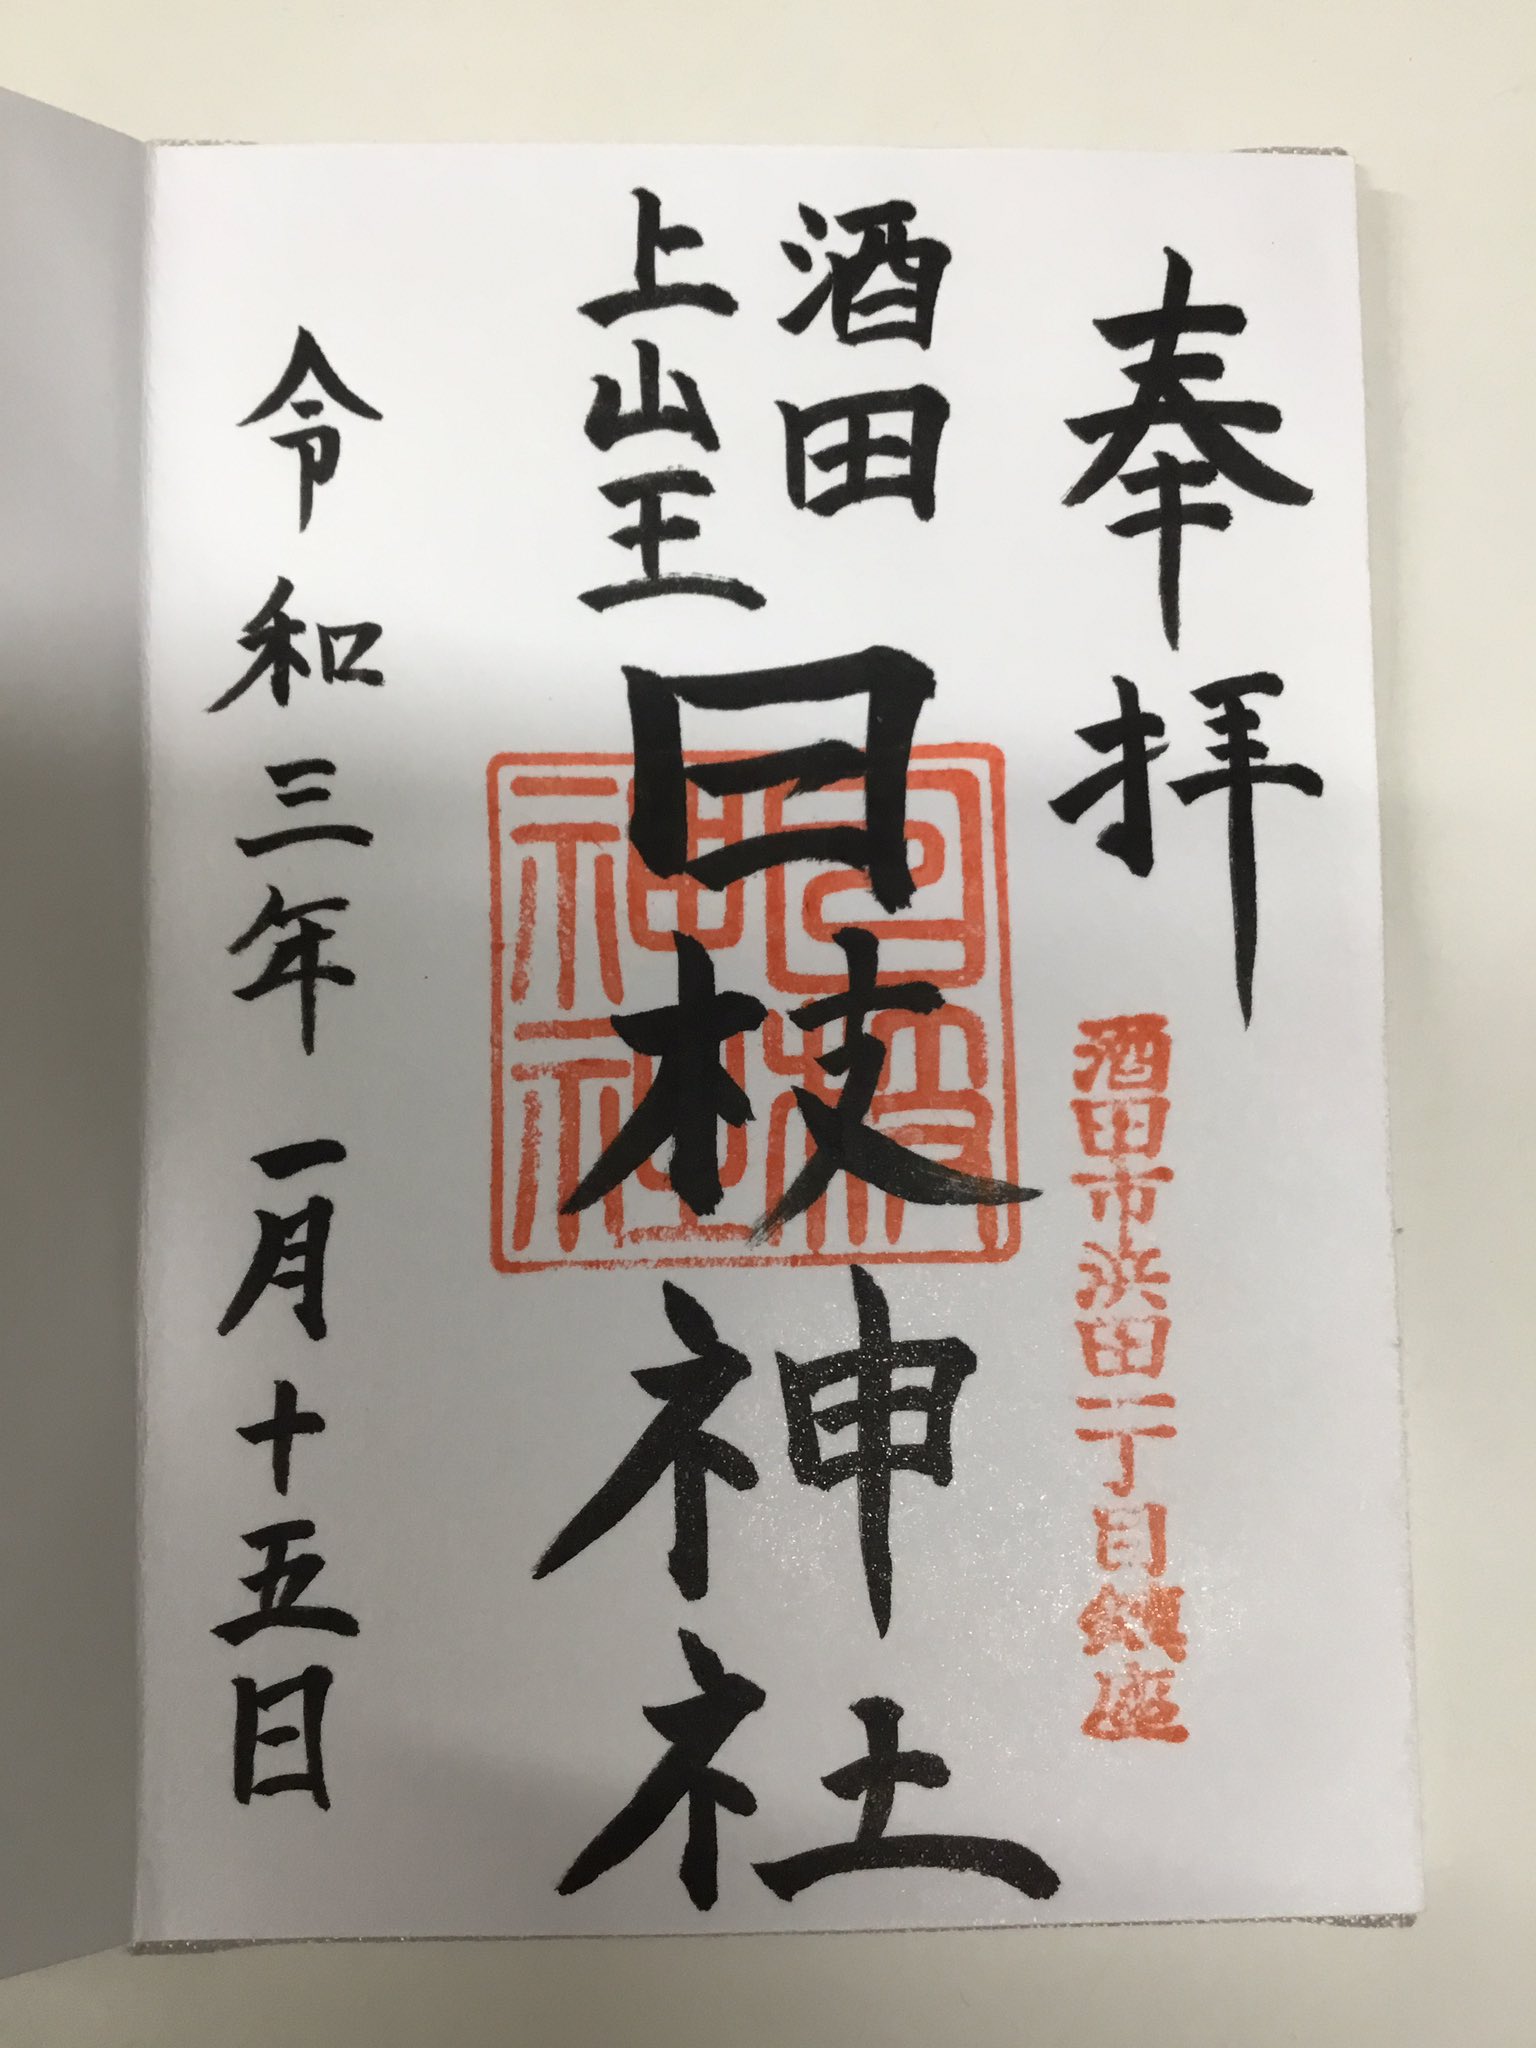 奉拝
酒田市浜田一丁目鎮座
酒田
上山王
日枝神社
日枝神社
令和三年一月十五日